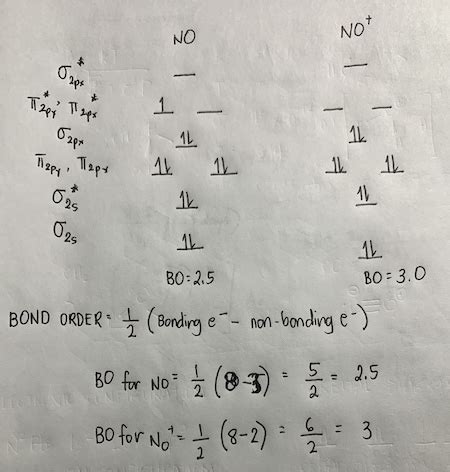 NO NO⁺
σ*2px
π*2py, π*2px 1
σ2px 1L 1L
π2py, π2px 1L 1L 1L 1L
σ*2s 1L 1L
σ2s 1L 1L
BO=2.5 BO=3.0
BOND ORDER= 1/2 (Bonding e⁻ - non-bonding e⁻)
BO for NO = 1/2 (8-3) = 5/2 = 2.5
BO for NO⁺= 1/2 (8-2) = 6/2 = 3